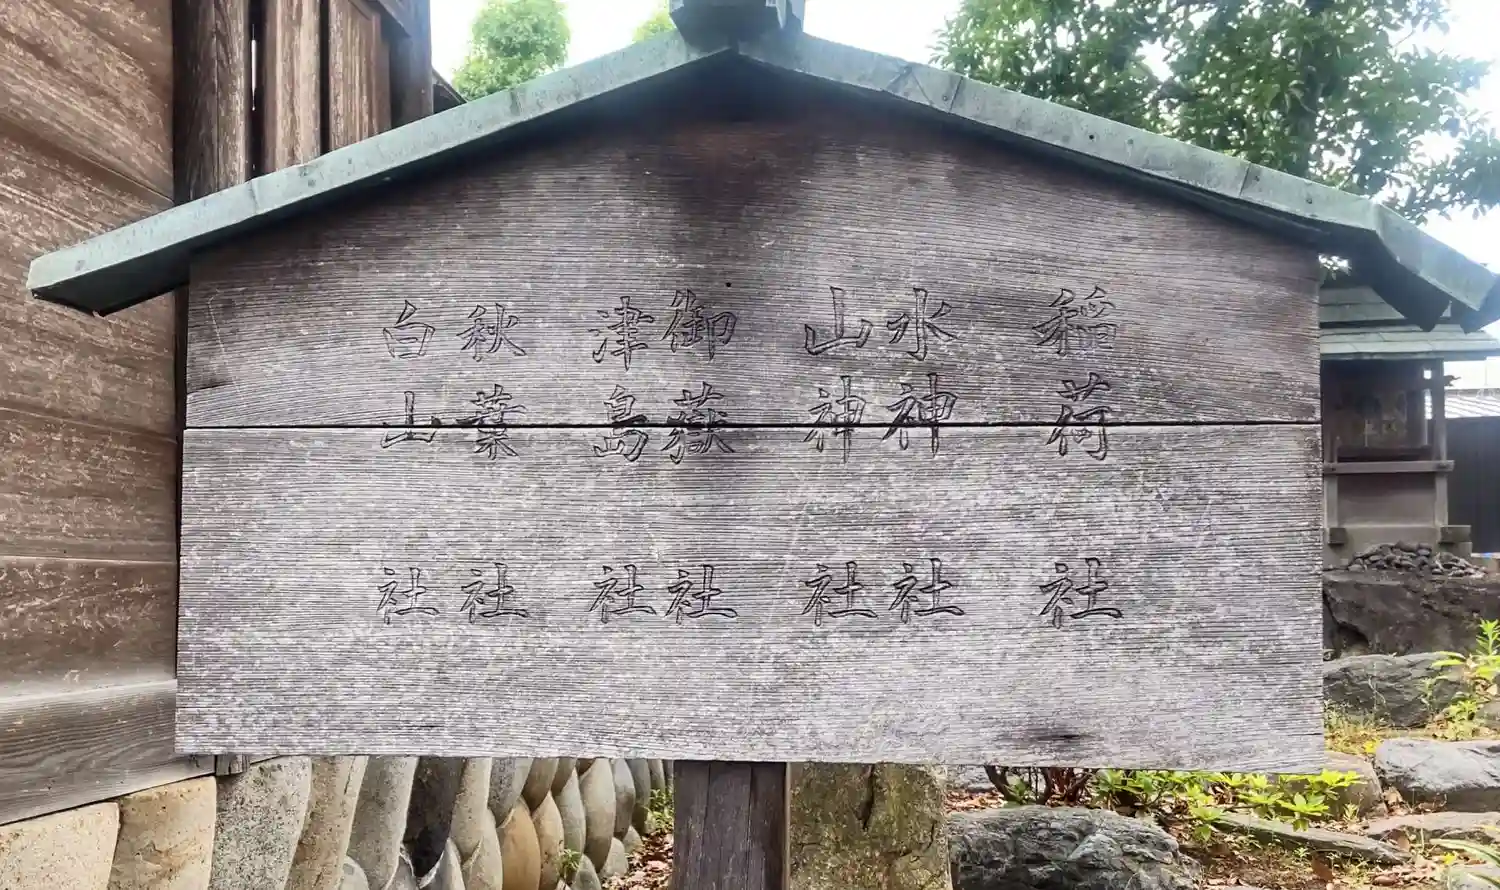 稲荷社
水神社
山神社
御嶽社
津島社
秋葉社
白山社